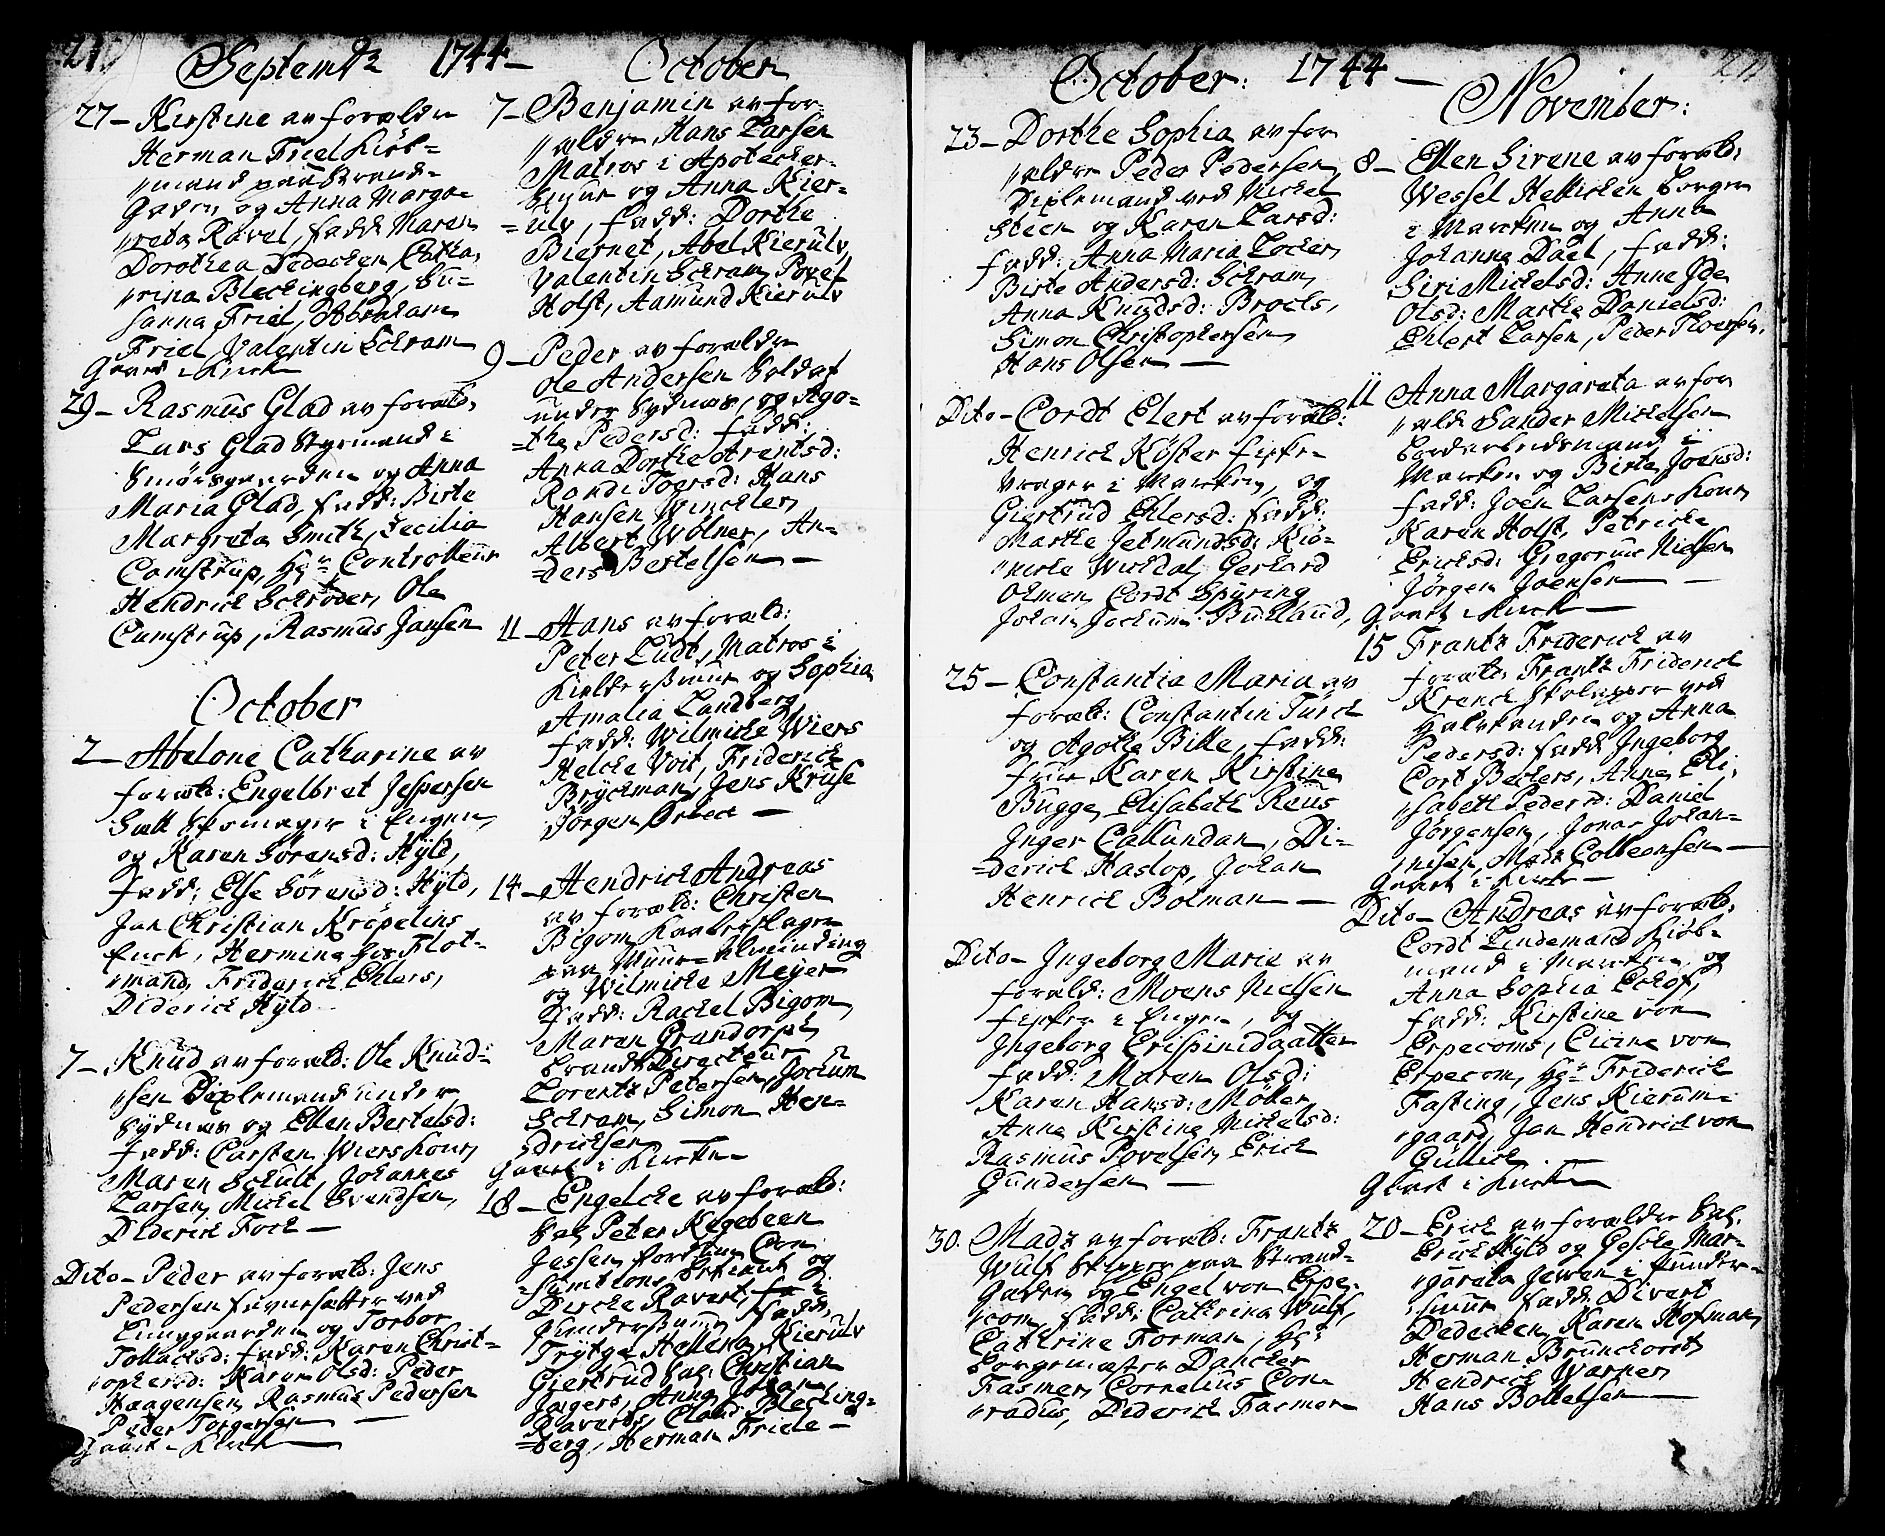 210
Septembr 1744 –
27 – Kirstine av forældre
Herman Friel Kiöb-
mand paa Strand-
Gaden, og Anna Marga-
reta Ravel, fadd: Maren
Dorothea Dedecken, Catha,
rina Bleckingberg, Su-
sanna Friel, Abraham
Friel, Valentin Schram
29 – Rasmus Glad av foræld,
Lars Glad Styrmand i
Smörsgaarden og Anna
Maria Glad, fadd: Birte
Margreta Smith, Cecilia
Camstrup, Hr Controlleur
Hendrich Schröder, Ole
Camstrup, Rasmus Jansen
October
2 – Abelone Catharine av
foræld: Engelbret Jespersen
i Engen,
og Karen Sörensd: Hÿld,
fadd: Else Sörensd: Hÿld,
Jan Christian Kröpelins
Enck, Hermina Flot-
mand, Friderich Ehlers,
Diderich Hÿld
7 – Knud av foræld: Ole Knud-
sen Piplemand under
Sydnæs og Ellen Bertelsd:
fadd: Carsten Wiers Kone,
Maren Schult, Johannes
Larsen, Michel Svendsen,
Diderich Foch –
Dito – Peder av foræld: Jens
Pedersen ved
og Torbor
Tollachsd: fadd: Karen Christ-
ophersd: Karen Olsd: Peder
Haagensen, Rasmus Pedersen
Peder Torgersen –
October
7 – Benjamin av for-
ældre, Hans Larsen
Matros i Apotecker-
Smuet og Anna Kier-
ulv, fadd: Dorthe
Biernet, Abel Kierulv,
Valentin Schram, Povel
Holst, Aamund Kierulv
9 – Peder av forældre
Ole Andersen Soldat
under Sydnæs, og Ago-
the Pedersd: fadd:
Anna Dorthe Arentsd:
Randi Toersd: Hans
Hansen Winchler,
Albert Wölner, An-
ders Bertelsen –
11 – Hans av foræld:
Peter Ludt, Matros i
og Sophia
Amalia Landberg
fadd: Wilmicke Wiers
Helche Voit, Friderich
Bryckman, Jens Kruse
Jörgen Örbech –
14 – Hendrich Andreas
av foræld: Christen
Bigom Kaaberslager
paa Muur-Alminding
og Wilmicke Meyer
fadd: Rachel Bigom,
Maren Grandorph,
Brand Directeur
Lorentz Petersen, Jochum
Schram, Simon Hen-
drichsen –
Gaaet i Kirke –
18 – Engelche av foræld:
Sal: Peter Kegebeen
Jessen, fordum Con-
og
Dirche Ravert,
fadd:
Trÿtge Hellena Kierulv
Giertrud Sal: Christian
Jagers, Anna Johan
Raverts, Claus Blecking-
berg, Herman Friele –
October: 1744 –
23 – Dorthe Sophia av for-
ældre Peder Pedersen,
Piplemand ved Michel
Steen og Karen Larsd:
fadd: Anna Maria Locher,
Birte Andersd: Schram,
Anna Knudsd: Brochs,
Simon Christophersen,
Hans Olsen –
Dito – Cordt Elert av foræld:
Henrich Köster
vrager i Marken, og
Giertrud Ehlersd: fadd:
Marthe Jetmundsd: Rie-
niche Wichdal, Gerhard
Ohmen, Cordt Spÿring
Johan Jochum Buchland,
25 – Constantia Maria av
foræld: Constantin Türch
og Agothe Bille, fadd:
frue Karen Kirstine
Bugge, Elisabeth Reüs
Inger Callundan, Di-
derich Haslop, Johan
Henrich Bolman –
Dito – Ingeborg Marie av
foræld: Moens Nielsen
i Engen, og
Ingeborg Crispinidaatter
fadd: Maren Olsd:
Karen Hansd: Möber,
Anne Kirstine Michelsd:
Rasmus Povelsen, Erich
Gundersen –
30. Madz av foræld: Frantz
Wulf Skipper paa Strand-
Gaden, og Engel von Erpe-
com, fadd: Cathrina Wulf,
Cathrine Forman, Hr
Borgemæster Dancker
Fasmer, Cornelius Con-
radus, Diderich Fasmer
211
November:
8 – Ellen Sirene av foræld:
Wessel Hellichen Borger
i Marken og Anna
Johanna Dael, fadd:
Siri Michelsd: Anne Ide
Olsd: Marthe Danielsd:
Ehlert Larsen, Peder Thoersen.
11 Anna Margareta av for-
æld: Sander Michelsen
Bordarbeidsmand i
Marken og Birte Joensd:
fadd: Joen Larsens Kone,
Karen Holst, Petriche
Erichsd: Gregorius Nielsen
Jörgen Joensen –
Gaaet i Kirke –
15 Frantz Friderich av
foræld: Frantz Friderich
Krench ved
og Anna
Pedersd: fadd: Ingeborg
Cort Beckers, Anne Eli,
sabeth Pedersd: Daniel
Jörgensen, Jonas Johan-
nesen, Madz Colbeensen –
Gaaet i Kirke –
Dito – Andreas av foræld:
Cordt Lindemand Kiöb-
mand i Marken, og
Anna Sophia Echof,
fadd: Kirstine von
Erpecoms, Cicine von
Erpecom, Hr Friderich
Fasting, Jens Kierum-
gaard, Jan Hendrich von
Güllich –
Gaaet i Kirke
20 – Erich av forældre Sal.
Erich Hÿld og Gesche Mar-
gareta Jewen i Sunder-
smuet fadd: Divert
Dedecken, Karen Hofman,
Herman Brunchorst,
Hendrich Warner,
Hans Bottelsen –